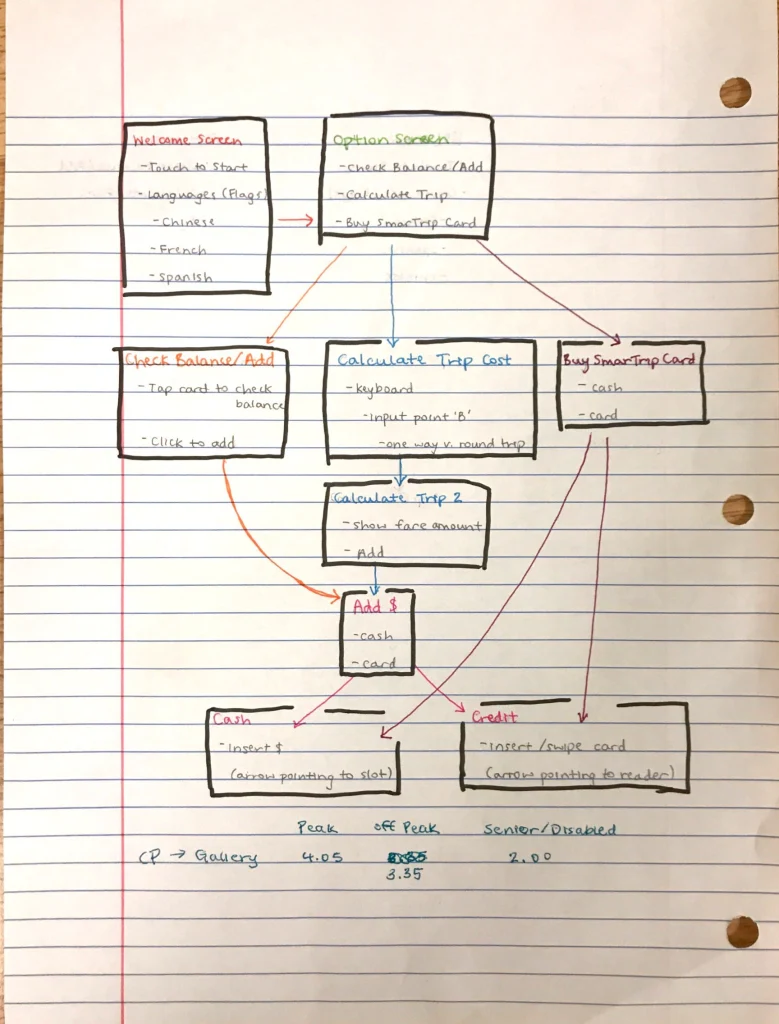 Welcome Screen
-Touch to Start
-Languages (Flags)
-Chinese
-French
-Spanish
Option Screen
-Check Balance/Add
-Calculate Trip
-Buy SmarTrip Card
Check Balance/Add
-Tap card to check
balance
-Click to add
Calculate Trip Cost
-keyboard
-Input point 'B'
-one way v. round trip
Buy SmarTrip Card
-cash
-card
Calculate Trip 2
-show fare amount
-Add
Add $
-cash
-card
Cash
-Insert $
(arrow pointing to slot)
Credit
-Insert/swipe card
(arrow pointing to reader)
Peak off Peak Senior/Disabled
CP → Gallery 4.05 2.00
3.35